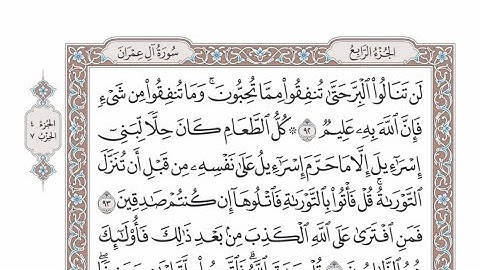 الجُزْءُ الرَّابِعُ
سُورَةُ آلِ عِمْرَانَ
لَن تَنَالُوا۟ ٱلْبِرَّ حَتَّىٰ تُنفِقُوا۟ مِمَّا تُحِبُّونَ ۚ وَمَا تُنفِقُوا۟ مِن شَىْءٍ
فَإِنَّ ٱللَّهَ بِهِۦ عَلِيمٌ ٩٢ ۞ كُلُّ ٱلطَّعَامِ كَانَ حِلًّا لِّبَنِىٓ
إِسْرَٰٓءِيلَ إِلَّا مَا حَرَّمَ إِسْرَٰٓءِيلُ عَلَىٰ نَفْسِهِۦ مِن قَبْلِ أَن تُنَزَّلَ
ٱلتَّوْرَىٰةُ ۗ قُلْ فَأْتُوا۟ بِٱلتَّوْرَىٰةِ فَٱتْلُوهَآ إِن كُنتُمْ صَٰدِقِينَ ٩٣
فَمَنِ ٱفْتَرَىٰ عَلَى ٱللَّهِ ٱلْكَذِبَ مِنۢ بَعْدِ ذَٰلِكَ فَأُو۟لَٰٓئِكَ
الجُزْءُ ٤
الحِزْبُ ٧